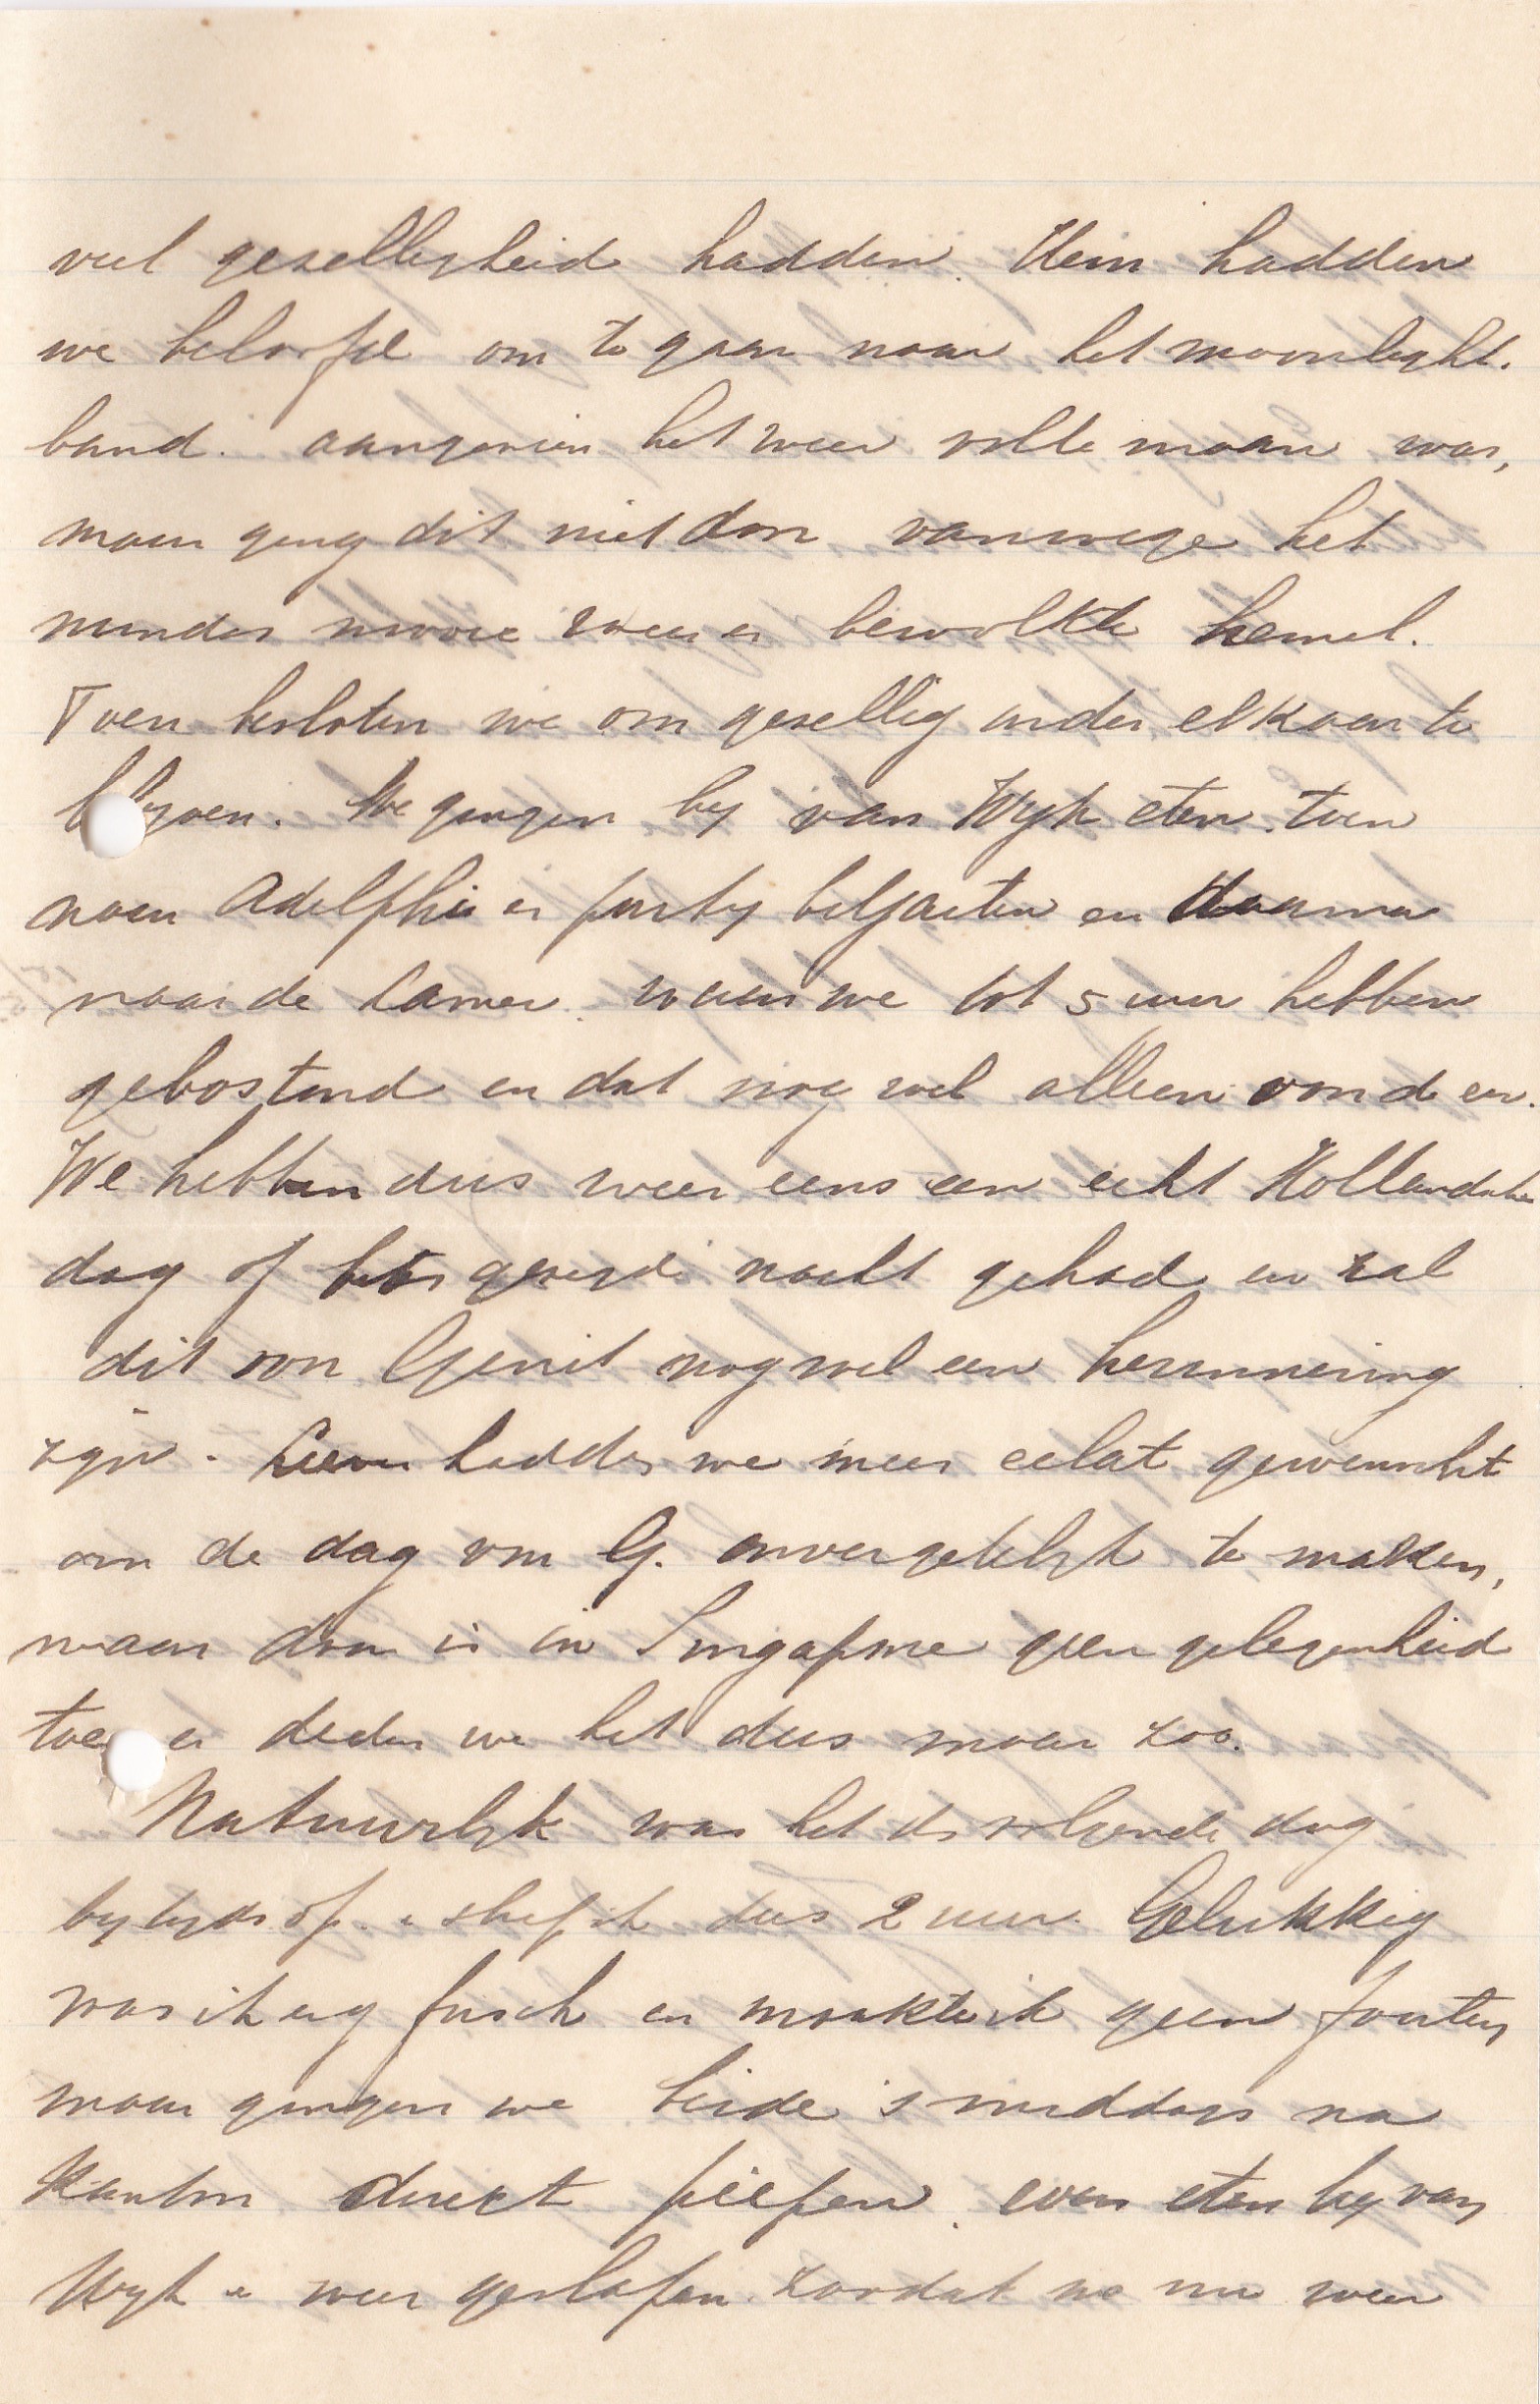 veel gezelligheid hadden. Hem hadden
we beloofd om te gaan naar het moonlight.
band. aangezien het weer volle maan was,
maar ging dit niet door vanwege het
minder mooie weer en bewolkte hemel.
Toen besloten we om gezellig onder elkaar te
blijven. We gingen bij van Wijk eten, toen
naar Adelphi en party biljarten en daarna
naar de kamer waar we tot 5 uur hebben
geboomd en dat nog wel alleen
We hebben dus weer eens een echt Hollandsche
dag of beter gezegd nacht gehad en zal
dit voor Gerrit nog wel een herinnering
zijn. Liever hadden we meer eclat gewenscht
om de dag van G. onvergetelijk te maken,
maar daar is in Singapore geen gelegenheid
toe en deden we het dus maar zoo.
Natuurlijk was het de volgende dag
bijtijds op en sliep ik dus 2 uur. Gelukkig
was ik erg frisch en maakte ik geen fouten
maar gingen we beide 's middags na
kantoor direct piepen, even eten bij van
Wijk en weer geslapen zoodat we nu weer